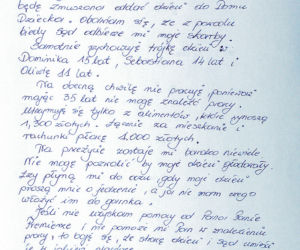 będę zmuszona oddać dzieci do Domu
Dziecka. Obawiam się, że z powodu
biedy Sąd odbierze mi moje skarby.
Samotnie wychowuję trójkę dzieci
Dominika 15 lat, Sebastiana 14 lat i
Oliwię 11 lat.
Na obecną chwilę nie pracuję ponieważ
mając 35 lat nie mogę znaleźć pracy.
Utrzymuję się tylko z alimentów, które wynoszą
1,300 złotych. Łącznie za mieszkanie i
rachunki płacę 1.000 złotych.
Na przeżycie zostaje mi bardzo niewiele
Nie mogę pozwolić by moje dzieci głodowały.
Łzy płyną mi do oczu gdy moje dzieci
proszą mnie o jedzenie, a ja nie mam czego
włożyć im do garnka.
Jeśli nie uzyskam pomocy od Pana Panie
Premierze i nie pomoże mi Pan w znalezieniu
pracy, to boję się, że stracę dzieci i Sąd umieści